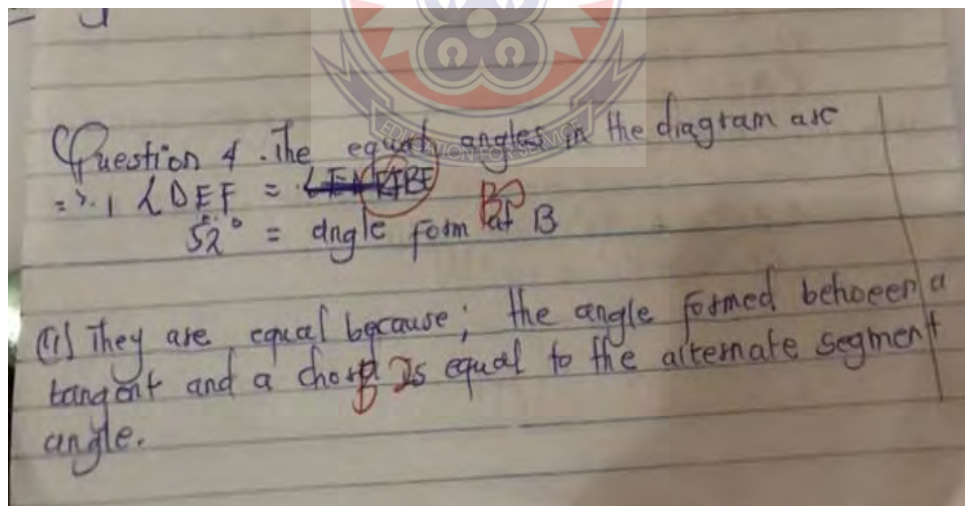 Question 4. The equal angles in the diagram are
=>. 1 ∠DEF = ∠FBE
52° = angle form at B
B0
(ii) They are equal because; the angle formed between a
tangent and a chord Is equal to the alternate segment
angle.
EDUCATION FOR SERVICE